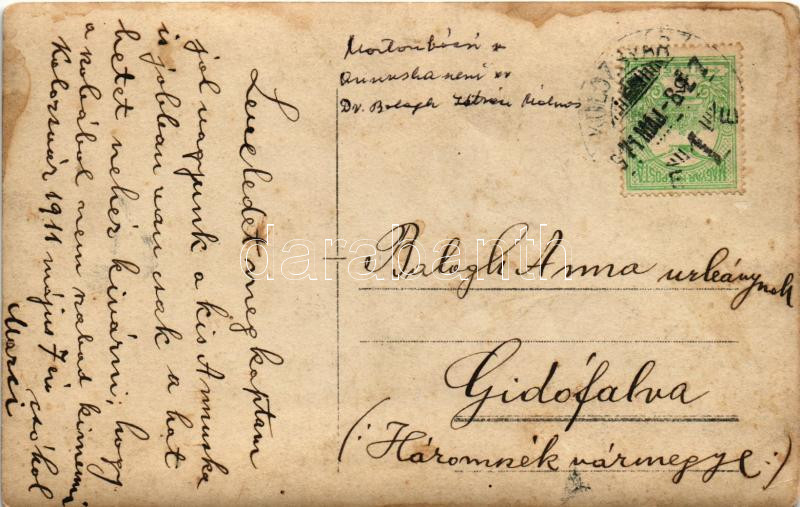 Leveledet megkaptam
jól vagyunk a kis Annuska
is jobban van csak a hat
hetet nehéz kivárni, hogy
a szobából nem szabad kimenni
Kolozsvár 1911 május 7én
csókol
Marci
Annuska néni
Dr. Balogh István Kálmos
KOLOZSVÁR
911 MÁJ. 8
MAGYAR POSTA
Balogh Anna urleánynak
Gidófalva
(: Háromszék vármegye :)
darabanth.com